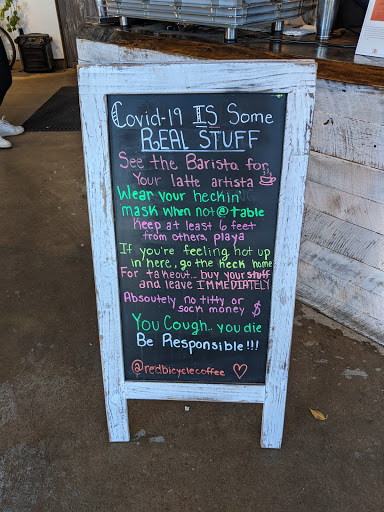 Covid-19 IS Some
REAL STUFF
See the Barista for
Your latte artista
Wear your heckin'
mask when not @ table
Keep at least 6 feet
from others, playa
If you're feeling hot up
in here, go the heck home
For takeout.. buy your stuff
and leave IMMEDIATELY
Absoutely no titty or
sock money $
You Cough.. you die
Be Responsible!!!
@redbicyclecoffee